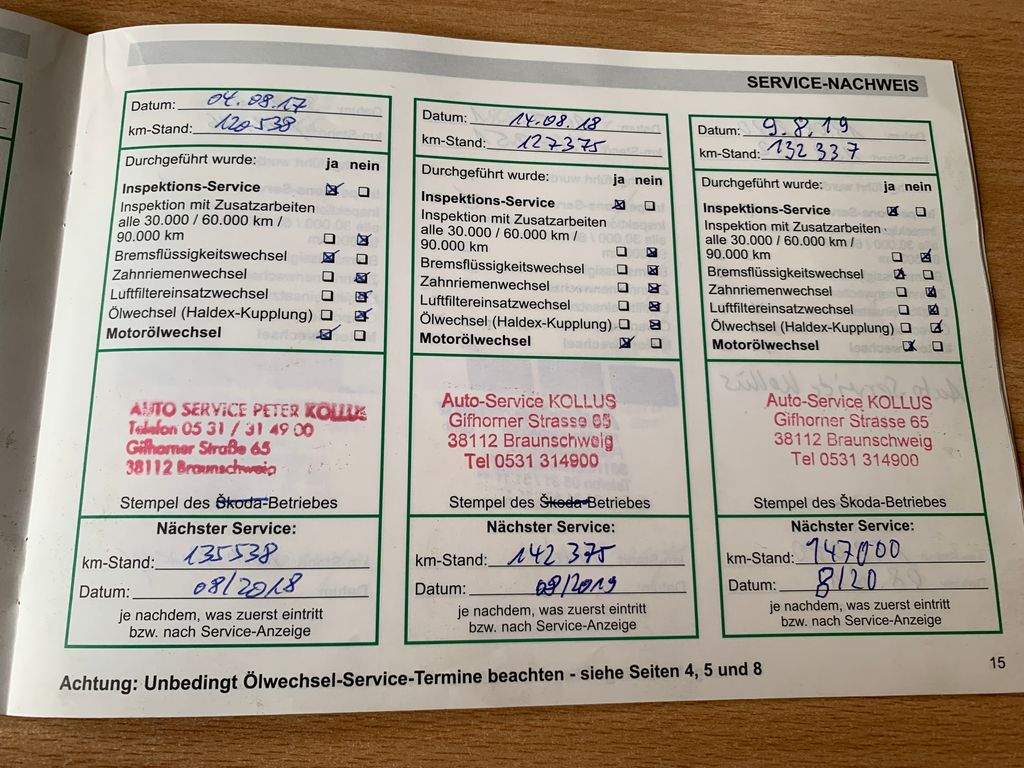 SERVICE-NACHWEIS
Datum: 04.08.17
km-Stand: 120538
Durchgeführt wurde: ja nein
Inspektions-Service
Inspektion mit Zusatzarbeiten
alle 30.000 / 60.000 km /
90.000 km
Bremsflüssigkeitswechsel
Zahnriemenwechsel
Luftfiltereinsatzwechsel
Ölwechsel (Haldex-Kupplung)
Motorölwechsel
AUTO SERVICE PETER KOLLUS
Telefon 05 31 / 31 49 00
Gifhorner Straße 65
38112 Braunschweig
Stempel des Škoda-Betriebes
Nächster Service:
km-Stand: 135538
Datum: 08/2018
je nachdem, was zuerst eintritt
bzw. nach Service-Anzeige
Datum: 14.08.18
km-Stand: 127375
Durchgeführt wurde: ja nein
Inspektions-Service
Inspektion mit Zusatzarbeiten
alle 30.000 / 60.000 km /
90.000 km
Bremsflüssigkeitswechsel
Zahnriemenwechsel
Luftfiltereinsatzwechsel
Ölwechsel (Haldex-Kupplung)
Motorölwechsel
Auto-Service KOLLUS
Gifhorner Strasse 65
38112 Braunschweig
Tel 0531 314900
Stempel des Škoda-Betriebes
Nächster Service:
km-Stand: 142 375
Datum: 08/2019
je nachdem, was zuerst eintritt
bzw. nach Service-Anzeige
Datum: 9.8.19
km-Stand: 132 337
Durchgeführt wurde: ja nein
Inspektions-Service
Inspektion mit Zusatzarbeiten
alle 30.000 / 60.000 km /
90.000 km
Bremsflüssigkeitswechsel
Zahnriemenwechsel
Luftfiltereinsatzwechsel
Ölwechsel (Haldex-Kupplung)
Motorölwechsel
Auto-Service KOLLUS
Gifhorner Strasse 65
38112 Braunschweig
Tel 0531 314900
Stempel des Škoda-Betriebes
Nächster Service:
km-Stand: 147000
Datum: 8/20
je nachdem, was zuerst eintritt
bzw. nach Service-Anzeige
Achtung: Unbedingt Ölwechsel-Service-Termine beachten - siehe Seiten 4, 5 und 8
15